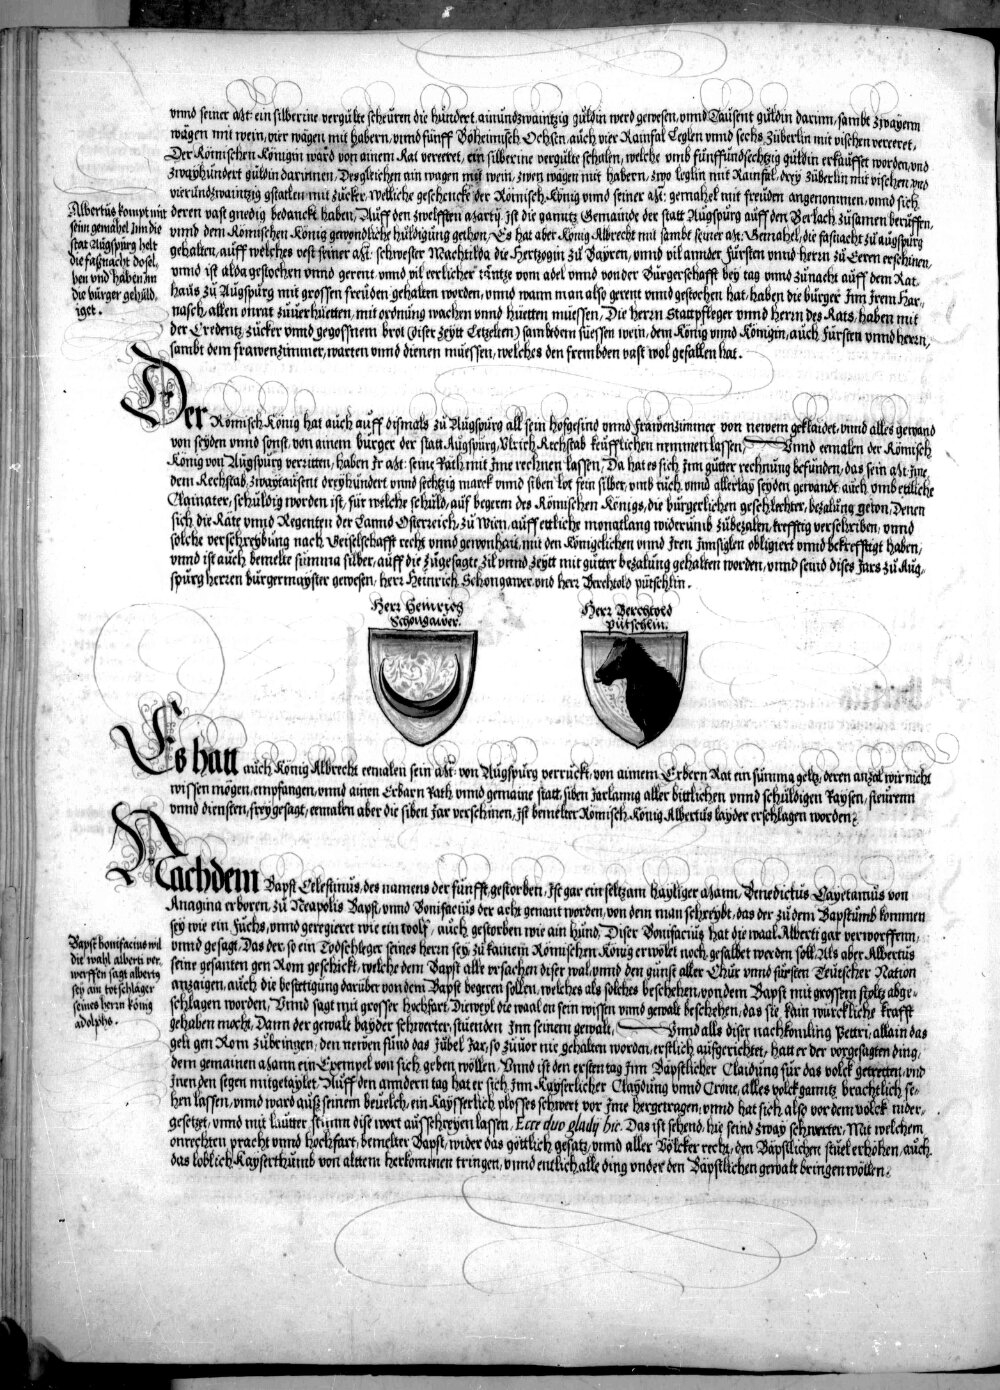 vnnd seiner Mt: ein silberine vergulte scheuren die hundert ainundzwaintzig guldin werd gewesen, vnnd Tausent guldin darinn, sambt zwayenn
wägen mit wein, vier wägen mit habern, vnnd fünff Böheimisch Ochsen, auch vier Rainfal Leglen vnnd sechs züberlin mit vischen vereret,
Der Römischen Königin ward von ainem Rat vereret, ein silberine vergulte schalen, welche vmb fünffundsechtzig guldin erkaufft worden, vnd
zwayhundert guldin darinnen, Desgleichen ain wagen mit wein, zwen wägen mit habern, zwo leglin mit Rainfal, drey züberlin mit vischen, vnd
vierundzwaintzig gstatlen mit zucker, Welliche geschenck der Römisch König vnnd seiner Mt: gemahel mit freuden angenommen, vnnd sich
deren vast gnedig bedanckt haben, Auff den zwelfften Martij ist die ganntz Gemainde der statt Augspurg auff den Berlach zusamen berüffen,
vnnd dem Römischen König gewondliche huldigung gethon, Es hat aber König Albrecht mit sambt seiner Mt: Gemahel, die fasnacht zu augspurg
gehalten, auff welches vest seiner Mt: schwester Machtilda die Hertzogin zu Bayren, vnnd vil annder Fürsten vnnd herrn zu Eeren erschinen,
vnnd ist alda gestochen vnnd gerent vnnd vil eerlicher täntze vom adel vnnd von der Burgerschafft bey tag vnnd zunacht auff dem Rat
haus zu Augspurg mit grossen freuden gehalten worden, vnnd wann man also gerent vnnd gestochen hat, haben die burger jnn jrem Har=
nasch, allen onrat zuuerhüetten, mit ordnung wachen vnnd hüetten müessen, Die herrn Stattpfleger vnnd herrn des Rats, haben mit
der Credentz, zucker vnnd gegossnem brot (diser zeytt Letzelten) sambt dem süessen wein, dem König vnnd Königin, auch Fürsten vnnd herrn,
sambt dem frawenzimmer, warten vnnd dienen müessen, welches den frembden vast wol gefallen hat.
Albertus kompt mit
seim gemahel Inn die
stat Augspurg helt
die faßnacht dosel,
ben vnd haben im
die bürger gehuld,
iget.
Der Römisch König hat auch auff dismals zu Augspurg all sein hofgesind vnnd Frawenzimmer von newem geklaidet, vnnd alles gewand
von seyden vnnd sonst, von ainem burger der statt Augspurg, Vlrich Rechstab keufflichen nemmen lassen, Vnnd eemalen der Römisch
König von Augspurg verritten, haben Ir Mt: seine Räth mit jme rechnen lassen, Da hat es sich jnn gutter rechnung befunden, das sein Mt: jme,
dem Rechstab, zwaytausent dreyhundert vnnd sechtzig marck vnnd siben lot fein silber, vmb tuch, vnnd allerlay seyden gewandt auch vmb ettliche
Clainater, schuldig worden ist, für welche schuld, auf begeren des Römischen Königs, die burgerlichen geschlechter, bezalung geton, Denen
sich die Räte vnnd Regenten der Lannd Osterreich, zu Wien, auff ettliche monatlang widerumb zubezalen, krefftig verschriben, vnnd
solche verschreybung nach Geiselschafft recht vnnd gewonhait, mit den Königclichen vnnd Iren Innsiglen obligiert vnnd bekrefftigt haben,
vnnd ist auch bemelte summa silber, auff die zugesagte zil vnnd zeytt mit gutter bezalung gehalten worden, vnnd seind dises Jars zu Aug,
spurg herren burgermayster gewesen, herr Heinrich Schongawer, vnd herr Berchtold pütschlin.
Herr Heinrich
Schongawer.
Herr Berchtold
pütschlin.
Es hatt auch König Albrecht eemalen sein Mt: von Augspurg verruckt, von ainem Erbern Rat ein summa geltz, deren anzal wir nicht
wissen mögen, empfangen, vnnd ainen Erbarn Rath, vnnd gemaine statt, siben Jarlanng aller bittlichen vnnd schuldigen Raysen, steurenn
vnnd diensten, frey gesagt, eemalen aber die siben Jar verschinen, ist bemelter Römisch König Albertus layder erschlagen worden.
Nachdem Bapst Celestinus, des namens der fünfft, gestorben, ist gar ein seltzam hayliger Mann, Benedictus Cayetanus von
Anagina erboren, zu Neapolis Bapst, vnnd Bonifacius der acht genant worden, von dem man schreybt, das der zu dem Bapstumb kommen
sey wie ein Fuchs, vnnd geregieret wie ein wolf, auch gestorben wie ain hund, Diser Bonifacius hat die waal Alberti gar verworffenn,
vnnd gesagt, Das der so ein Todschleger seines herrn sey, zu kainem Römischen König erwölet noch gesalbet werden soll, Als aber Albertus
seine gesanten gen Rom geschickt, welche dem Bapst alle vrsachen diser wal, vnnd den gunst aller Chur vnnd fürsten Teutscher Nation
anzaigen, auch die bestettigung darüber von dem Bapst begeren sollen, welches als solches beschehen, von dem Bapst mit grossem stoltz abge=
schlagen worden, Vnnd sagt mit grosser hochfart, Dieweyl die waal on sein wissen vnnd gewalt beschehen, das sie kain würckliche krafft
gehaben mocht, Dann der gewalt bayder schwerter, stuenden jnn seinem gewalt, Vnnd alls diser nachkomling Pettri, allain das
gelt gen Rom zubringen, den newen fund das Jubel Jar, so zuuor nie gehalten worden, erstlich aufgerichtet, hatt er der vorgesagten ding,
dem gemainen Mann ein Exempel von sich geben wöllen, Vnnd ist den ersten tag jnn Bäpstlicher Claidung für das volck getretten, vnd
jnen den segen mitgetaylet, Auff den anndern tag hat er sich jnn Kayserlicher Claydung vnnd Crone, alles volck ganntz brachtlich se=
hen lassen, vnnd ward auß seinem beuelch, ein Kaysserlich plosses schwert vor jme hergetragen, vnnd hat sich also vor dem volck nider,
gesetzet, vnnd mit lautter stimm dise wort aussschreyen lassen, Ecce duo gladij hic. Das ist sehend, hie seind zway schwerter, Mit welchem
onrechten pracht vnnd hochfart, bemelter Bapst, wider das göttlich gesatz, vnnd aller Völcker recht, den Bäpstlichen stuel erhöhen, auch
das loblich Kayserthumb von alttem herkommen tringen, vnnd entlich alle ding vnder den Bäpstlichen gewalt bringen wöllen.
Bapst bonifacius wil
die wahl alberti ver,
werffen sagt alberty
sey ain totschlager
seines herrn könig
adolphs.